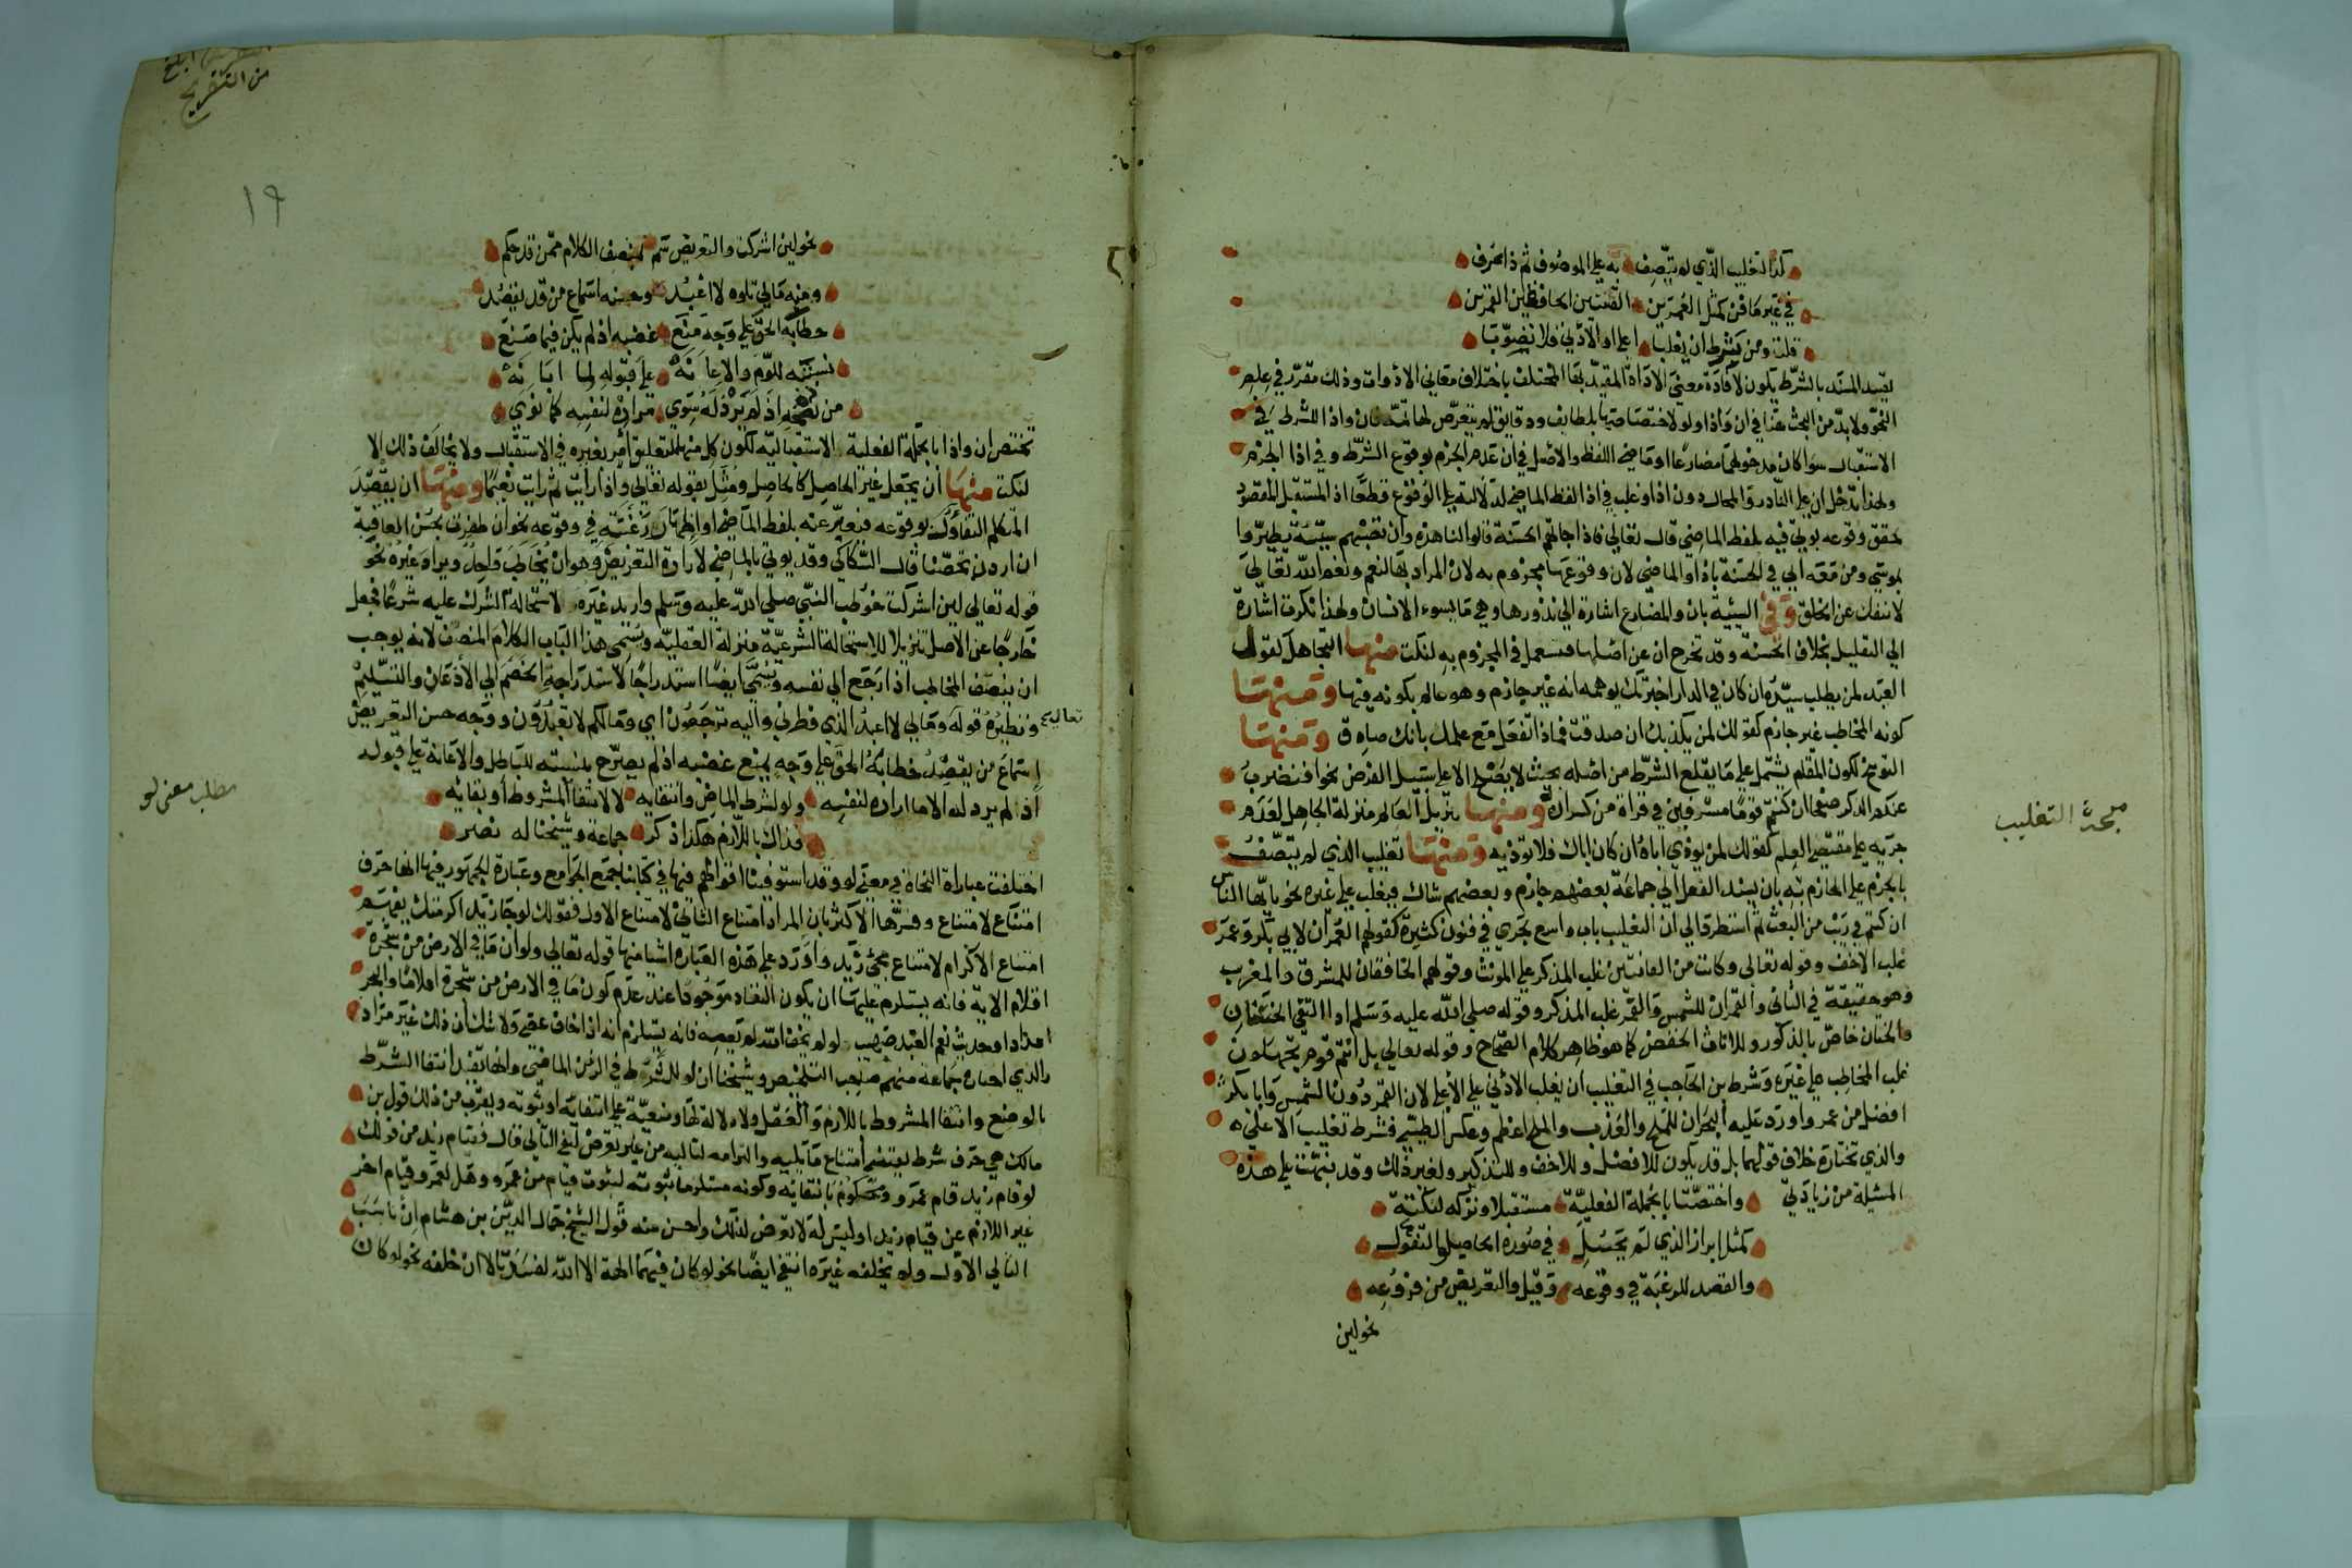 كذا لتغليب الذي لم يتصف به على الموصوف ثم ذا عرف
في غير ما فن كمثل العمرين القنتين الحافظين القمرين
قلت ومن يشرط ان يغلبا اعلى او الادنى فلا نصوبا
تقييد المسند بالشرط يكون لافادة معنى الاداة المقيد بها المختلف باختلاف معاني الادوات وذلك مقرر في علم
النحو ولا بد من البحث هنا في ان واذا ولو لاختصاصها بلطايف ودقايق لم يتعرض لها ثمة فان واذا للشرط في
الاستقبال سوا كان مدخولهما مضارعا او ماضي اللفظ والاصل في ان عدم الجزم بوقوع الشرط وفي اذا الجزم
ولهذا تدخل ان على النادر والمحال دون اذا وغلب في اذا لفظ الماضي لدلالته على الوقوع قطعا اذ المستقبل المقصود
تحقق وقوعه يوتي فيه بلفظ الماضي قال تعالى فاذا جاتهم الحسنة قالوا لنا هذه وان تصبهم سيئة يطيروا
بموسى ومن معه اتي في الحسنة باذا والماضي لان وقوعها مجزوم به لان المراد بها النعم ونعم الله تعالى
لا تنفك عن الخلق وفي السيئة بان والمضارع اشارة الى نذورها وهي ما يسوء الانسان ولهذا نكرت اشارة
الى التقليل بخلاف الحسنة وقد تخرج ان عن اصلها فتستعمل في المجزوم به لنكت منها التجاهل كقول
العبد لمن يطلب سيده ان كان في الدار اخبرتك يوهمه انه غير جازم وهو عالم بكونه فيها ومنها
كونه المخاطب غير جازم كقولك لمن يكذبك ان صدقت فماذا تفعل مع علمك بانك صادق ومنها
التوبيخ لكون المقام يشتمل على ما يقلع الشرط من اصله بحيث لا يصلح الا على سبيل الفرض نحو افنضرب
عنكم الذكر صفحا ان كنتم قوما مسرفين في قراة من كسر ان ومنها تنزيل العالم منزلة الجاهل لعدم
جريه على مقتضى العلم كقولك لمن يوذي اباه ان كان اباك فلا توذيه ومنها تغليب الذي لم يتصف
بالجزم على الجازم به بان يسند الفعل الى جماعة بعضهم جازم وبعضهم شاك فيغلب على غيره نحو يا ايها الناس
ان كنتم في ريب من البعث ثم استطرق الى ان التغليب باب واسع يجري في فنون كثيرة كقولهم العمران لابي بكر وعمر
غلب الاخف وقوله تعالى وكانت من القانتين غلب المذكر على المونث وقولهم الخافقان للمشرق والمغرب
وهو حقيقة في الثاني والقمران للشمس والقمر غلب المذكر وقوله صلى الله عليه وسلم اذا التقى الختانان
والختان خاص بالذكور وللاناث الخفض كما هو ظاهر كلام الصحاح وقوله تعالى بل انتم قوم تجهلون
غلب المخاطب على غيره وشرط بن الحاجب في التغليب ان يغلب الادنى على الاعلى لان القمر دون الشمس وابا بكر
افضل من عمر واورد عليه البحران للملح والعذب والملح اعظم وعكس الطيبي فشرط تغليب الاعلى
والذي نختاره خلاف قولهما بل قد يكون للافضل وللاخف وللتذكير ولغير ذلك وقد نبهت على هذه
المسئلة من زيادتي واختصتا بالجملة الفعلية مستقبلا وتركه لنكتة
كمثل ابراز الذي لم يحصل في صورة الحاصل والتفول
والقصد للرغبة في وقوعه وقيل والتعريض من فروعه
نحو لين
مبحث التغليب
من التصريح
١٩
نحو لين اشركت والتعريض سم بمنصف الكلام ممن قد حكم
ومنه مالي تلوه لا اعبد وحسنه اسماع من قد يقصد
خطابه الحق على وجه منع غضبه اذ لم يكن فيما صنع
نسبته للوم والاعانة على قبوله لما ابانه
من نصحه اذ لم يرد له سوى مراده لنفسه كما نوي
تختص ان واذا بالجملة الفعلية الاستقبالية لكون كل منهما لتعليق امر بغيره في الاستقبال ولا يخالف ذلك الا
لنكت منها ان يجعل غير الحاصل كالحاصل ومثل بقوله تعالى واذا رايت ثم رايت نعيما ومنها ان يقصد
المتكلم التفاؤل بوقوعه فيعبر عنه بلفظ الماضي او اظهار رغبته في وقوعه نحو ان ظفرت بحسن العاقبة
ان اردن تحصنا قال السكاكي وقد يوتي بالماضي لارادة التعريض وهو ان يخاطب واحد ويراد غيره نحو
قوله تعالى لين اشركت خوطب النبي صلى الله عليه وسلم واريد غيره لاستحالة الشرك عليه شرعا فجعل
خارجا عن الاصل تنزيلا للاستحالة الشرعية منزلة العقلية ويسمى هذا الباب الكلام المنصف لانه يوجب
ان ينصف المخاطب اذا رجع الى نفسه ويسمى ايضا استدراجا لاستدراجه الخصم الى الاذعان والتسليم
ونظيره قوله تعالى ومالي لا اعبد الذي فطرني واليه ترجعون اي ومالكم لا تعبدون ووجه حسن التعريض
اسماع من يقصد خطابه الحق على وجه يمنع غضبه اذ لم يصرح بنسبته للباطل والاعانة على قبوله
اذ لم يرد له الا ما اراده لنفسه ولو لشرط الماض وانتفايه لا لانتفا المشروط او بقايه
فذاك باللازم هكذا ذكر جماعة وشيخنا له نصر
مطلب معنى لو
اختلفت عبارة النحاة في معنى لو وقد استوفينا اقوالهم فيها في كتابنا جمع الجوامع وعبارة الجمهور فيها انها حرف
امتناع لامتناع وفسرها الاكثر بان المراد امتناع الثاني لامتناع الاول فقولك لو جا زيد اكرمتك يفهم
امتناع الاكرام لامتناع مجي زيد واورد على هذه العبارة اشيا منها قوله تعالى ولو ان ما في الارض من شجرة
اقلام الاية فانه يستلزم عليها ان يكون النفاد موجودا عند عدم كون ما في الارض من شجرة اقلاما والبحر
امدادا وحديث نعم العبد صهيب لو لم يخف الله لم يعصه فانه يستلزم انه اذا خاف عصى ولا شك ان ذلك غير مراد
والذي اختاره جماعة منهم صاحب التلخيص وشيخنا ان لو للشرط في الزمن الماضي وانها تفيد انتفا الشرط
بالوضع وانتفا المشروط باللازم والعقل ولا دلالة لها وضعية على انتفايه او ثبوته ويقرب من ذلك قول بن
مالك هي حرف شرط يقتضي امتناع ما يليه والتزامه لتاليه من غير تعرض لنفي التالي قال فقيام زيد من قولك
لو قام زيد قام عمرو محكوم بانتفايه وكونه مستلزما ثبوته لثبوت قيام من عمرو وهل لعمرو قيام اخر
غير اللازم عن قيام زيد او ليس له لا تعرض لذلك واحسن منه قول الشيخ جمال الدين بن هشام ان ناسب
التالي الاول ولم يخلفه غيره انتفي ايضا نحو لو كان فيهما الهة الا الله لفسدتا لا ان خلفه نحو لو كان